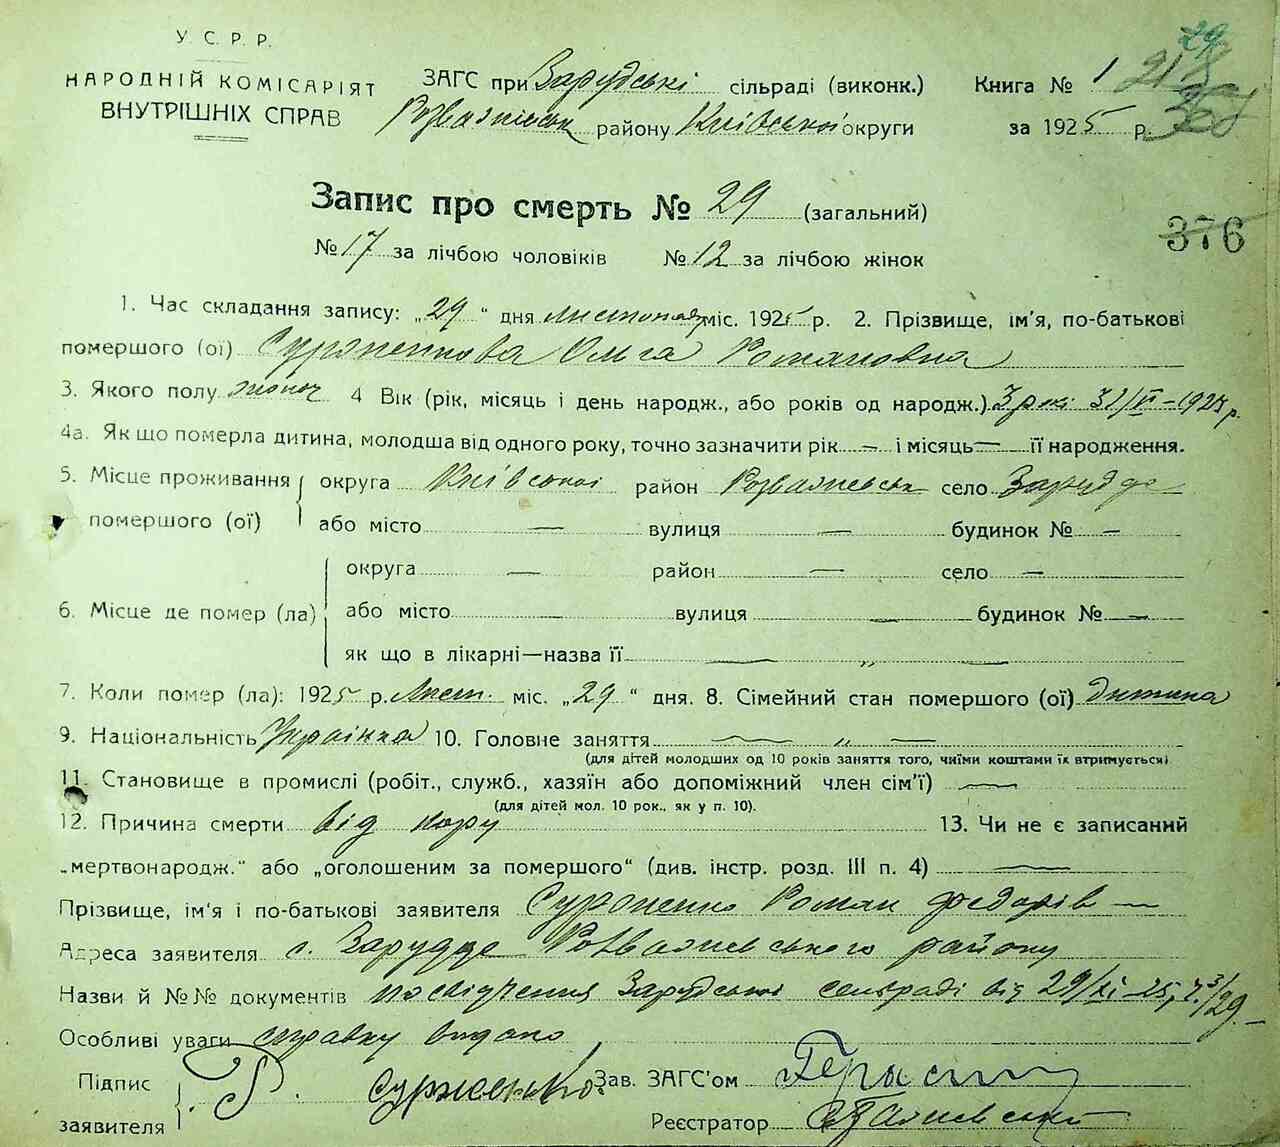 У. С. Р. Р.
НАРОДНІЙ КОМІСАРІЯТ
ВНУТРІШНІХ СПРАВ
ЗАГС при Зарудській сільраді (виконк.)
району Київської округи
Книга № 1
за 1925 р.
29
218
Запис про смерть № 29 (загальний)
376
№ 17 за лічбою чоловіків № 12 за лічбою жінок
1. Час складання запису: „29“ дня листопада міс. 1925 р. 2. Прізвище, ім'я, по-батькові
помершого (ої) Ольга Романовна
3. Якого полу жіноч 4 Вік (рік, місяць і день народж., або років од народж.) 3 рокі
4а. Як що померла дитина, молодша від одного року, точно зазначити рік — і місяць — її народження.
5. Місце проживання округа Київської район Розважевськ село Зарудде
помершого (ої) або місто — вулиця — будинок № —
округа — район — село —
6. Місце де помер (ла) або місто вулиця — будинок № —
як що в лікарні—назва її — „ —
7. Коли помер (ла): 1925 р. Лист. міс. „29“ дня. 8. Сімейний стан помершого (ої) дитина
9. Національність Украінка 10. Головне заняття — „ —
(для дітей молодших од 10 років заняття того, чиїми коштами їх втримується)
11. Становище в промислі (робіт., служб., хазяїн або допоміжний член сім'ї) —
(для дітей мол. 10 рок., як у п. 10).
12. Причина смерти від кору 13. Чи не є записаний
„мертвонародж.“ або „оголошеним за помершого“ (див. інстр. розд. III п. 4) —
Прізвище, ім'я і по-батькові заявителя Роман Федорів —
Адреса заявителя с. Зарудде Розважевського району
Назви й №№ документів посвідчення Зарудської сельраді від 29/XI-25,
Особливі уваги справку видано
Підпис
заявителя Р.
Зав. ЗАГС'ом
Реєстратор